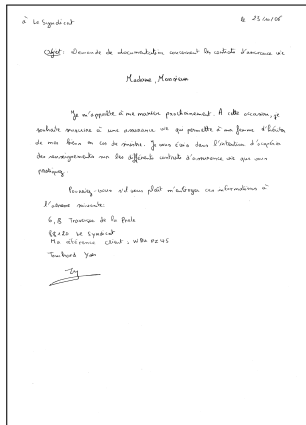 à Le Syndicat le 23/00/06
Objet : Demande de documentation concernant les contrats d'assurance vie
Madame, Monsieur
Je m'apprête à me marier prochainement. A cette occasion, je
souhaite souscrire à une assurance vie qui permette à ma femme d'hériter
de mes biens en cas de montre. Je vous écris dans l'intention d'acquérir
des renseignements sur les différents contrats d'assurance vie que vous
pratiquez.
Pourriez-vous s'il vous plaît m'envoyer ces informations à
l'adresse suivante:
6, 8 Traversee de la
88120 Le Syndicat
Ma référence client :
Yan